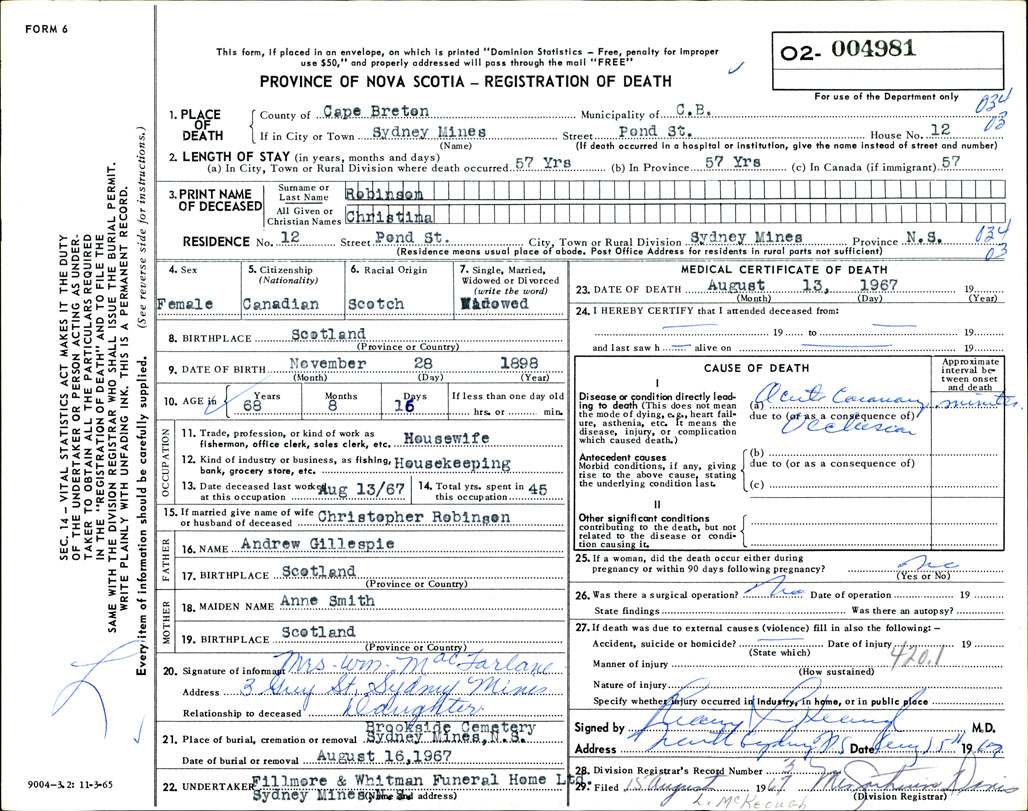 FORM 6
This form, if placed in an envelope, on which is printed "Dominion Statistics – Free, penalty for improper
use $50," and properly addressed will pass through the mail "FREE"
O2- 004981
For use of the Department only
PROVINCE OF NOVA SCOTIA – REGISTRATION OF DEATH
1. PLACE OF DEATH County of Cape Breton Municipality of C.B. 034
If in City or Town Sydney Mines Street Pond St. House No. 12 03
(Name) (If death occurred in a hospital or institution, give the name instead of street and number)
2. LENGTH OF STAY (in years, months and days)
(a) In City, Town or Rural Division where death occurred 57 Yrs (b) In Province 57 Yrs (c) In Canada (if immigrant) 57
3. PRINT NAME OF DECEASED Surname or Last Name Robinson
All Given or Christian Names Christina
RESIDENCE No. 12 Street Pond St. City, Town or Rural Division Sydney Mines Province N.S. 034
03
(Residence means usual place of abode. Post Office Address for residents in rural parts not sufficient)
4. Sex Female
5. Citizenship (Nationality) Canadian
6. Racial Origin Scotch
7. Single, Married, Widowed or Divorced (write the word) Widowed
8. BIRTHPLACE Scotland
(Province or Country)
9. DATE OF BIRTH November 28 1898
(Month) (Day) (Year)
10. AGE in Years 68 Months 8 Days 16 If less than one day old
hrs. or min.
OCCUPATION
11. Trade, profession, or kind of work as
fisherman, office clerk, sales clerk, etc. Housewife
12. Kind of industry or business, as fishing,
bank, grocery store, etc. Housekeeping
13. Date deceased last worked
at this occupation Aug 13/67
14. Total yrs. spent in
this occupation 45
15. If married give name of wife
or husband of deceased Christopher Robinson
FATHER
16. NAME Andrew Gillespie
17. BIRTHPLACE Scotland
(Province or Country)
MOTHER
18. MAIDEN NAME Anne Smith
19. BIRTHPLACE Scotland
(Province or Country)
20. Signature of informant Mrs. Wm. MacFarlane
Address 3 Guy St. Sydney Mines
Relationship to deceased Daughter
21. Place of burial, cremation or removal Brookside Cemetery
Sydney Mines, N.S.
Date of burial or removal August 16,1967
22. UNDERTAKER Fillmore & Whitman Funeral Home Ltd.
Sydney Mines N.S.
(Name and address)
MEDICAL CERTIFICATE OF DEATH
23. DATE OF DEATH August 13, 1967 19
(Month) (Day) (Year)
24. I HEREBY CERTIFY that I attended deceased from:
19 to 19
and last saw h alive on 19
CAUSE OF DEATH
Approximate interval between onset and death
I
Disease or condition directly lead-
ing to death (This does not mean
the mode of dying, e.g., heart fail-
ure, asthenia, etc. It means the
disease, injury, or complication
which caused death.)
(a) Acute Coronary minutes
due to (or as a consequence of)
Occlusion
Antecedent causes
Morbid conditions, if any, giving
rise to the above cause, stating
the underlying condition last.
(b)
due to (or as a consequence of)
(c)
II
Other significant conditions
contributing to the death, but not
related to the disease or condi-
tion causing it.
25. If a woman, did the death occur either during
pregnancy or within 90 days following pregnancy? no
(Yes or No)
26. Was there a surgical operation? No Date of operation 19
State findings Was there an autopsy?
27. If death was due to external causes (violence) fill in also the following: –
Accident, suicide or homicide? Date of injury 19
(State which)
420.1
Manner of injury
(How sustained)
Nature of injury
Specify whether injury occurred in industry, in home, or in public place
Signed by M.D.
Address North Sydney NS Date Aug 15th 1967
28. Division Registrar's Record Number
29. Filed 15 August 1967
(Division Registrar)
L. McKeough
SEC. 14 – VITAL STATISTICS ACT MAKES IT THE DUTY
OF THE UNDERTAKER OR PERSON ACTING AS UNDER-
TAKER TO OBTAIN ALL THE PARTICULARS REQUIRED
IN THE "REGISTRATION OF DEATH" AND TO FILE THE
SAME WITH THE DIVISION REGISTRAR WHO SHALL ISSUE THE BURIAL PERMIT.
WRITE PLAINLY WITH UNFADING INK. THIS IS A PERMANENT RECORD.
Every item of information should be carefully supplied. (See reverse side for instructions.)
9004-3.2: 11-3-65